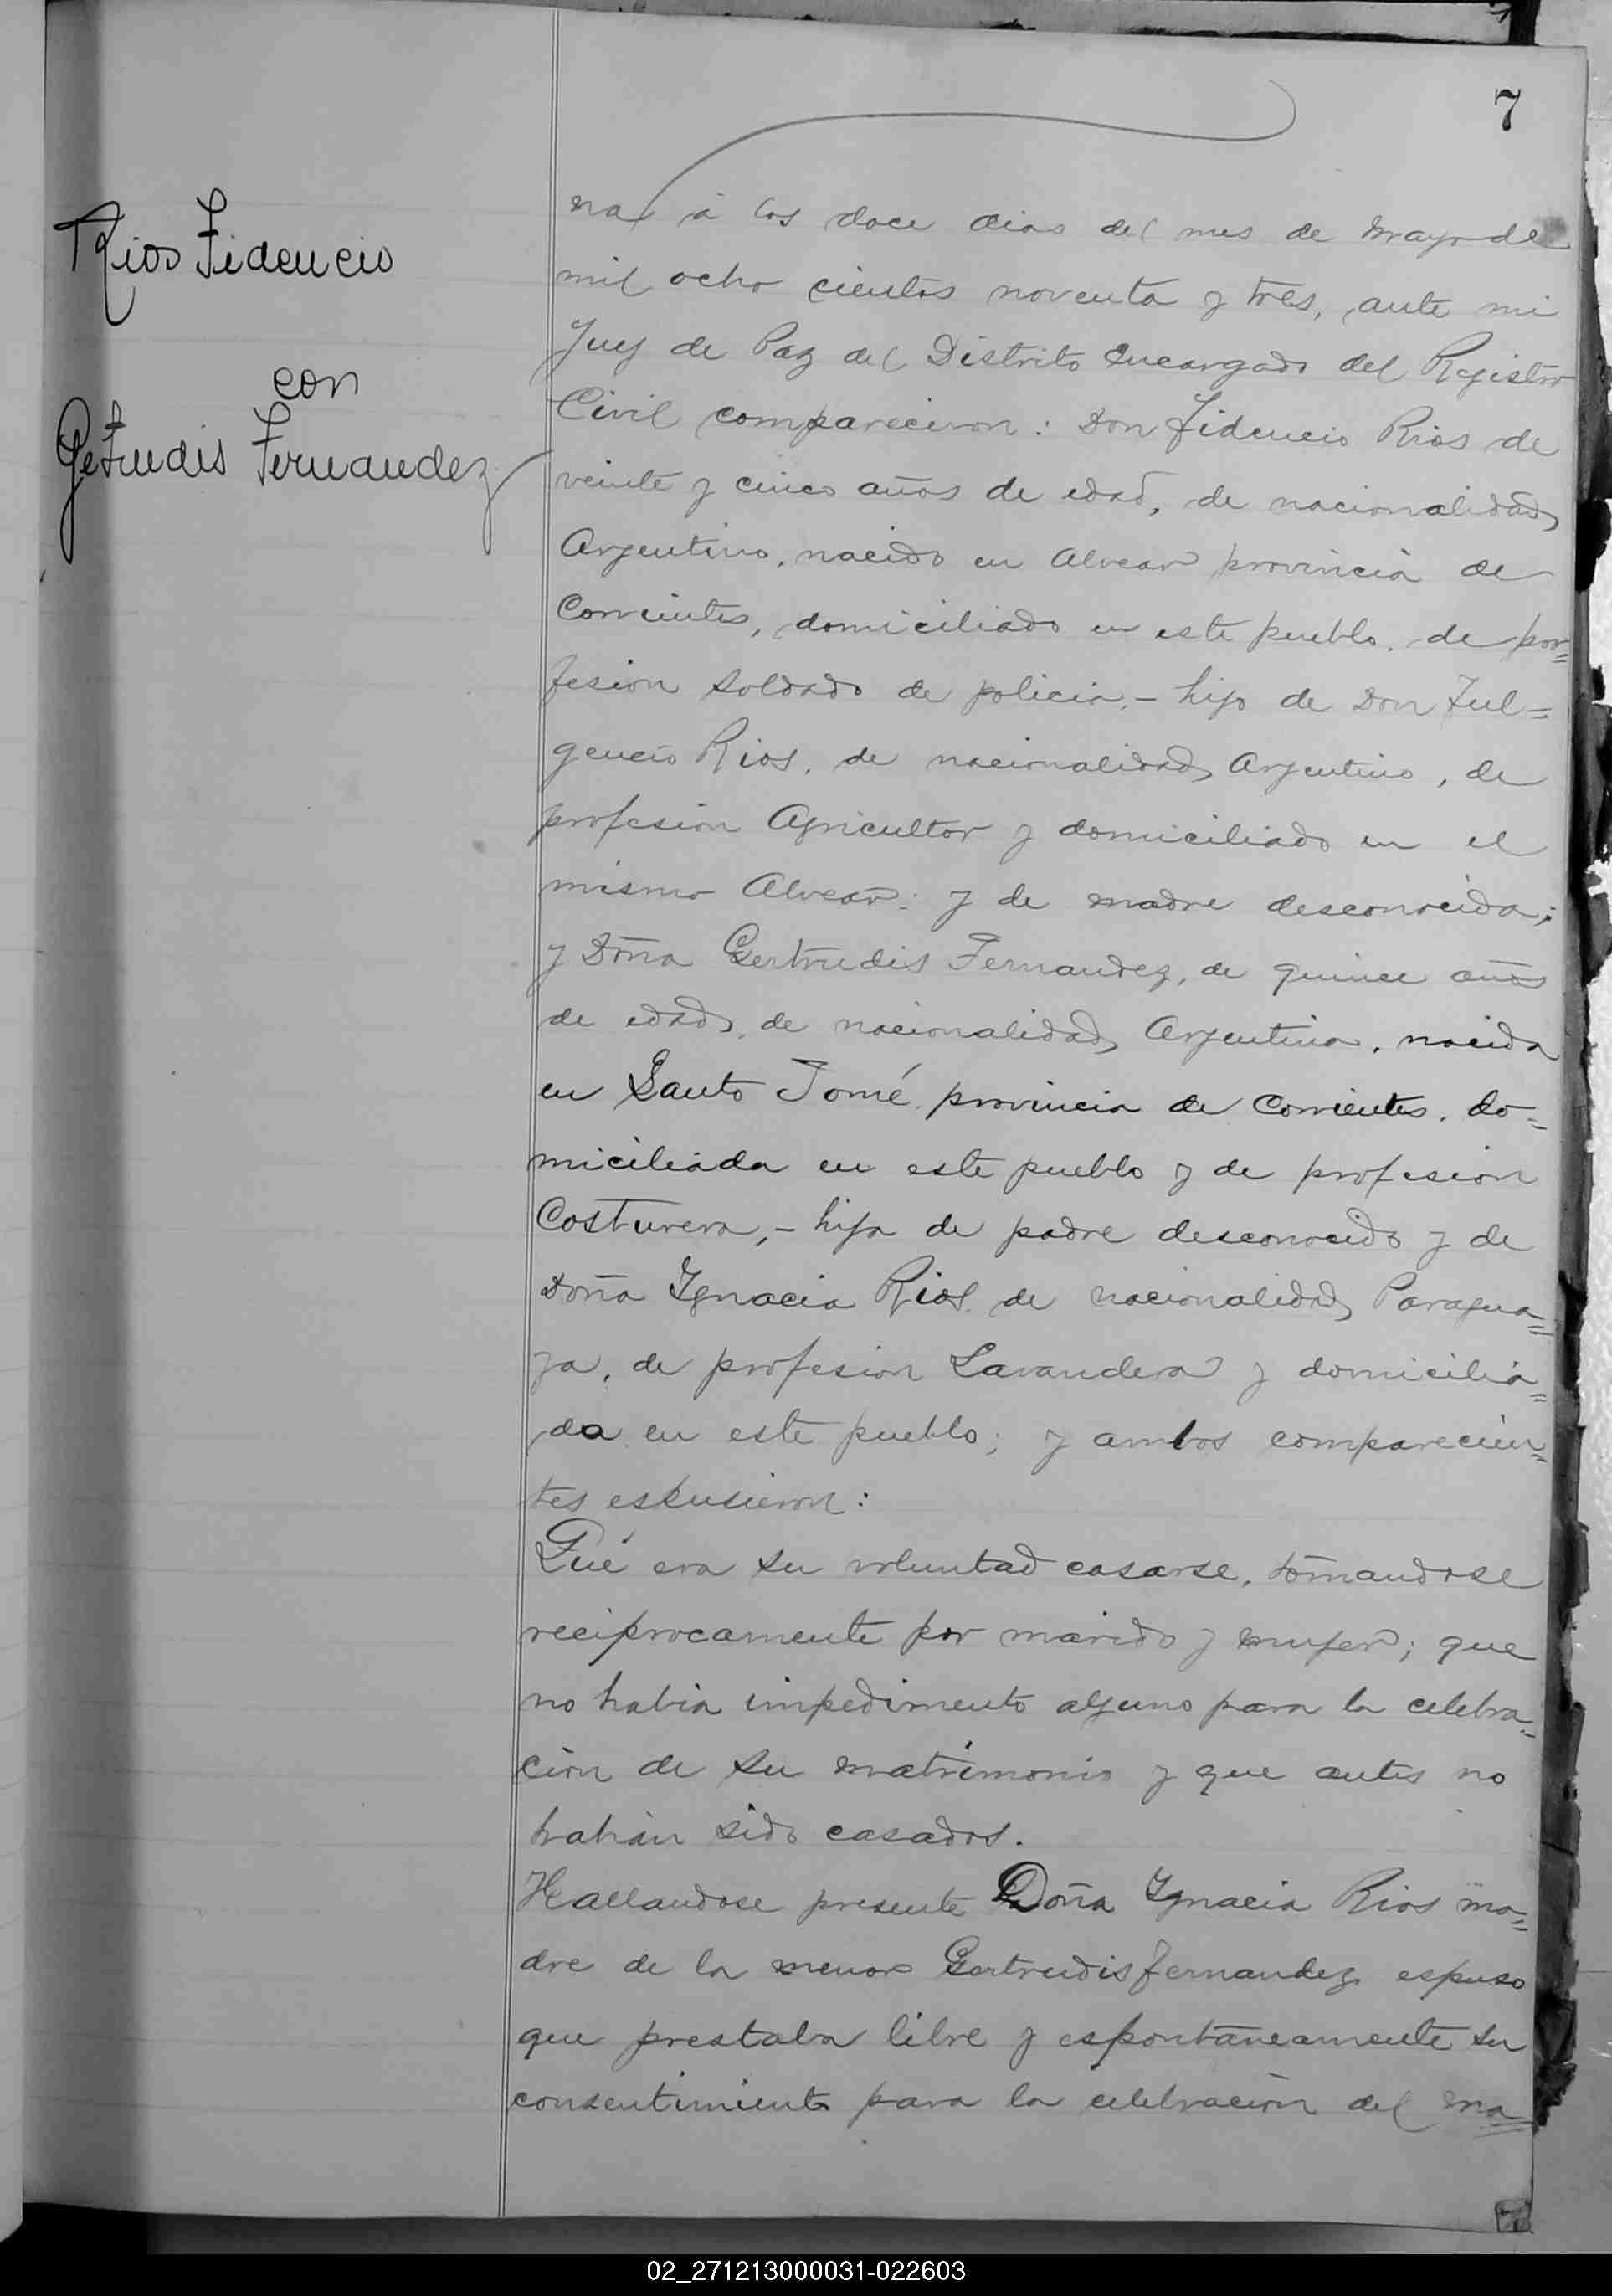 7
Rios Fidencio
con
Getrudis Fernandez
na á los doce dias del mes de Mayo de
mil ocho cientos noventa y tres, ante mi
Juez de Paz del Distrito Encargado del Registro
Civil comparecieron: Don Fidencio Rios de
veinte y cinco años de edad, de nacionalidad
Argentino, nacido en Alvear provincia de
Corrientes, domiciliado en este pueblo, de por=
fesion soldado de policia,- hijo de Don Ful=
gencio Rios, de nacionalidad Argentino, de
profesion Agricultor y domiciliado en el
mismo Alvear; y de madre desconocida;
y Doña Gertrudis Fernandez, de quince años
de edad, de nacionalidad Argentina, nacida
en Santo Tomé provincia de Corrientes, do=
miciliada en este pueblo y de profesion
Costurera,- hija de padre desconocido y de
Doña Ygnacia Rios de nacionalidad Paragua=
ya, de profesion Lavandera y domicilia=
da en este pueblo; y ambos comparecien=
tes espusieron:
Qué era su voluntad casarse, tomandose
reciprocamente por marido y mujer; que
no habia impedimento alguno para la celebra=
cion de su matrimonio y que antes no
habian sido casados.
Hallandose presente Doña Ygnacia Rios ma=
dre de la menor Gertrudis Fernandez espuso
que prestaba libre y espontaneamente su
consentimiento para la celebracion del ma
02_271213000031-022603